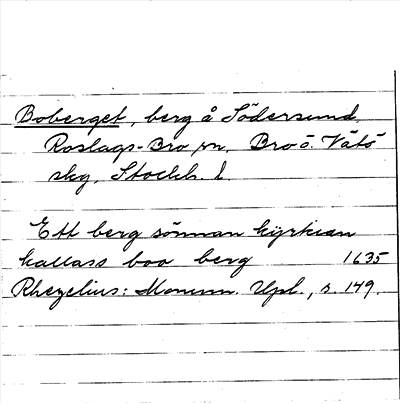 Boberget, berg å Södersund,
Roslags-Bro sn, Bro o. Vätö
skg, Stockh. l.
Ett berg sönnan kyrkian
kallass boo berg 1635
Rhezelius: Monum. Upl., s. 149.